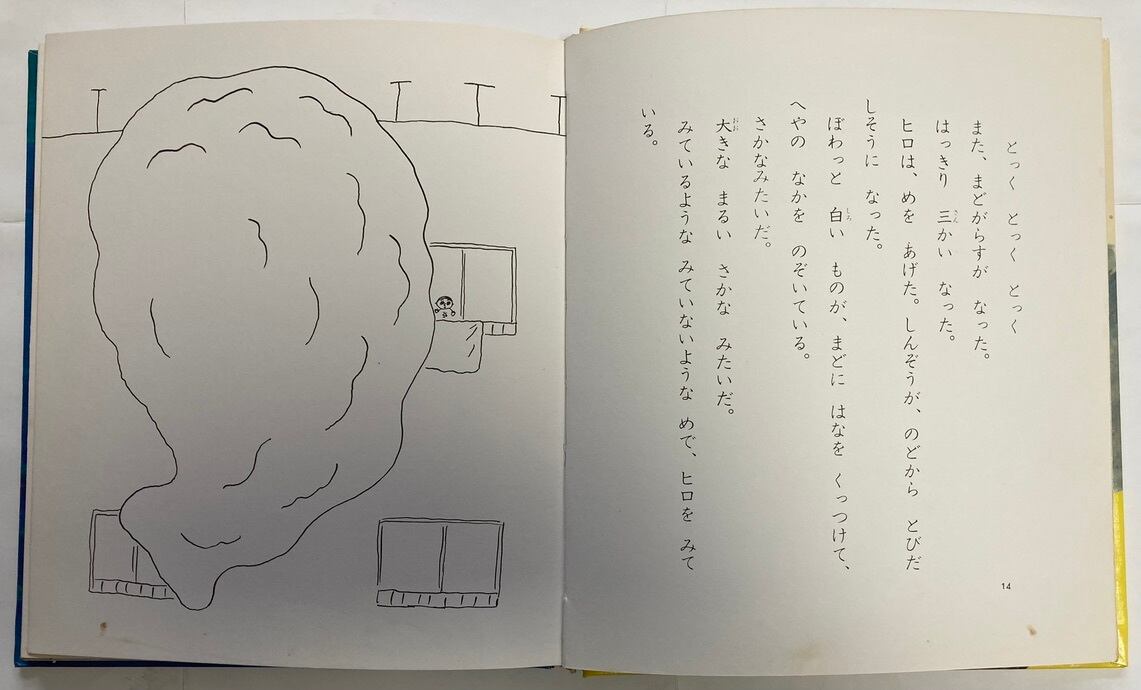 とっく　とっく　とっく
また、まどがらすが　なった。
はっきり　三かい　なった。
ヒロは、めを　あげた。しんぞうが、のどから　とびだ
しそうに　なった。
ぼわっと　白い　ものが、まどに　はなを　くっつけて、
へやの　なかを　のぞいている。
さかなみたいだ。
大きな　まるい　さかな　みたいだ。
みているような　みていないような　めで、ヒロを　みて
いる。
さん
しろ
おお
14